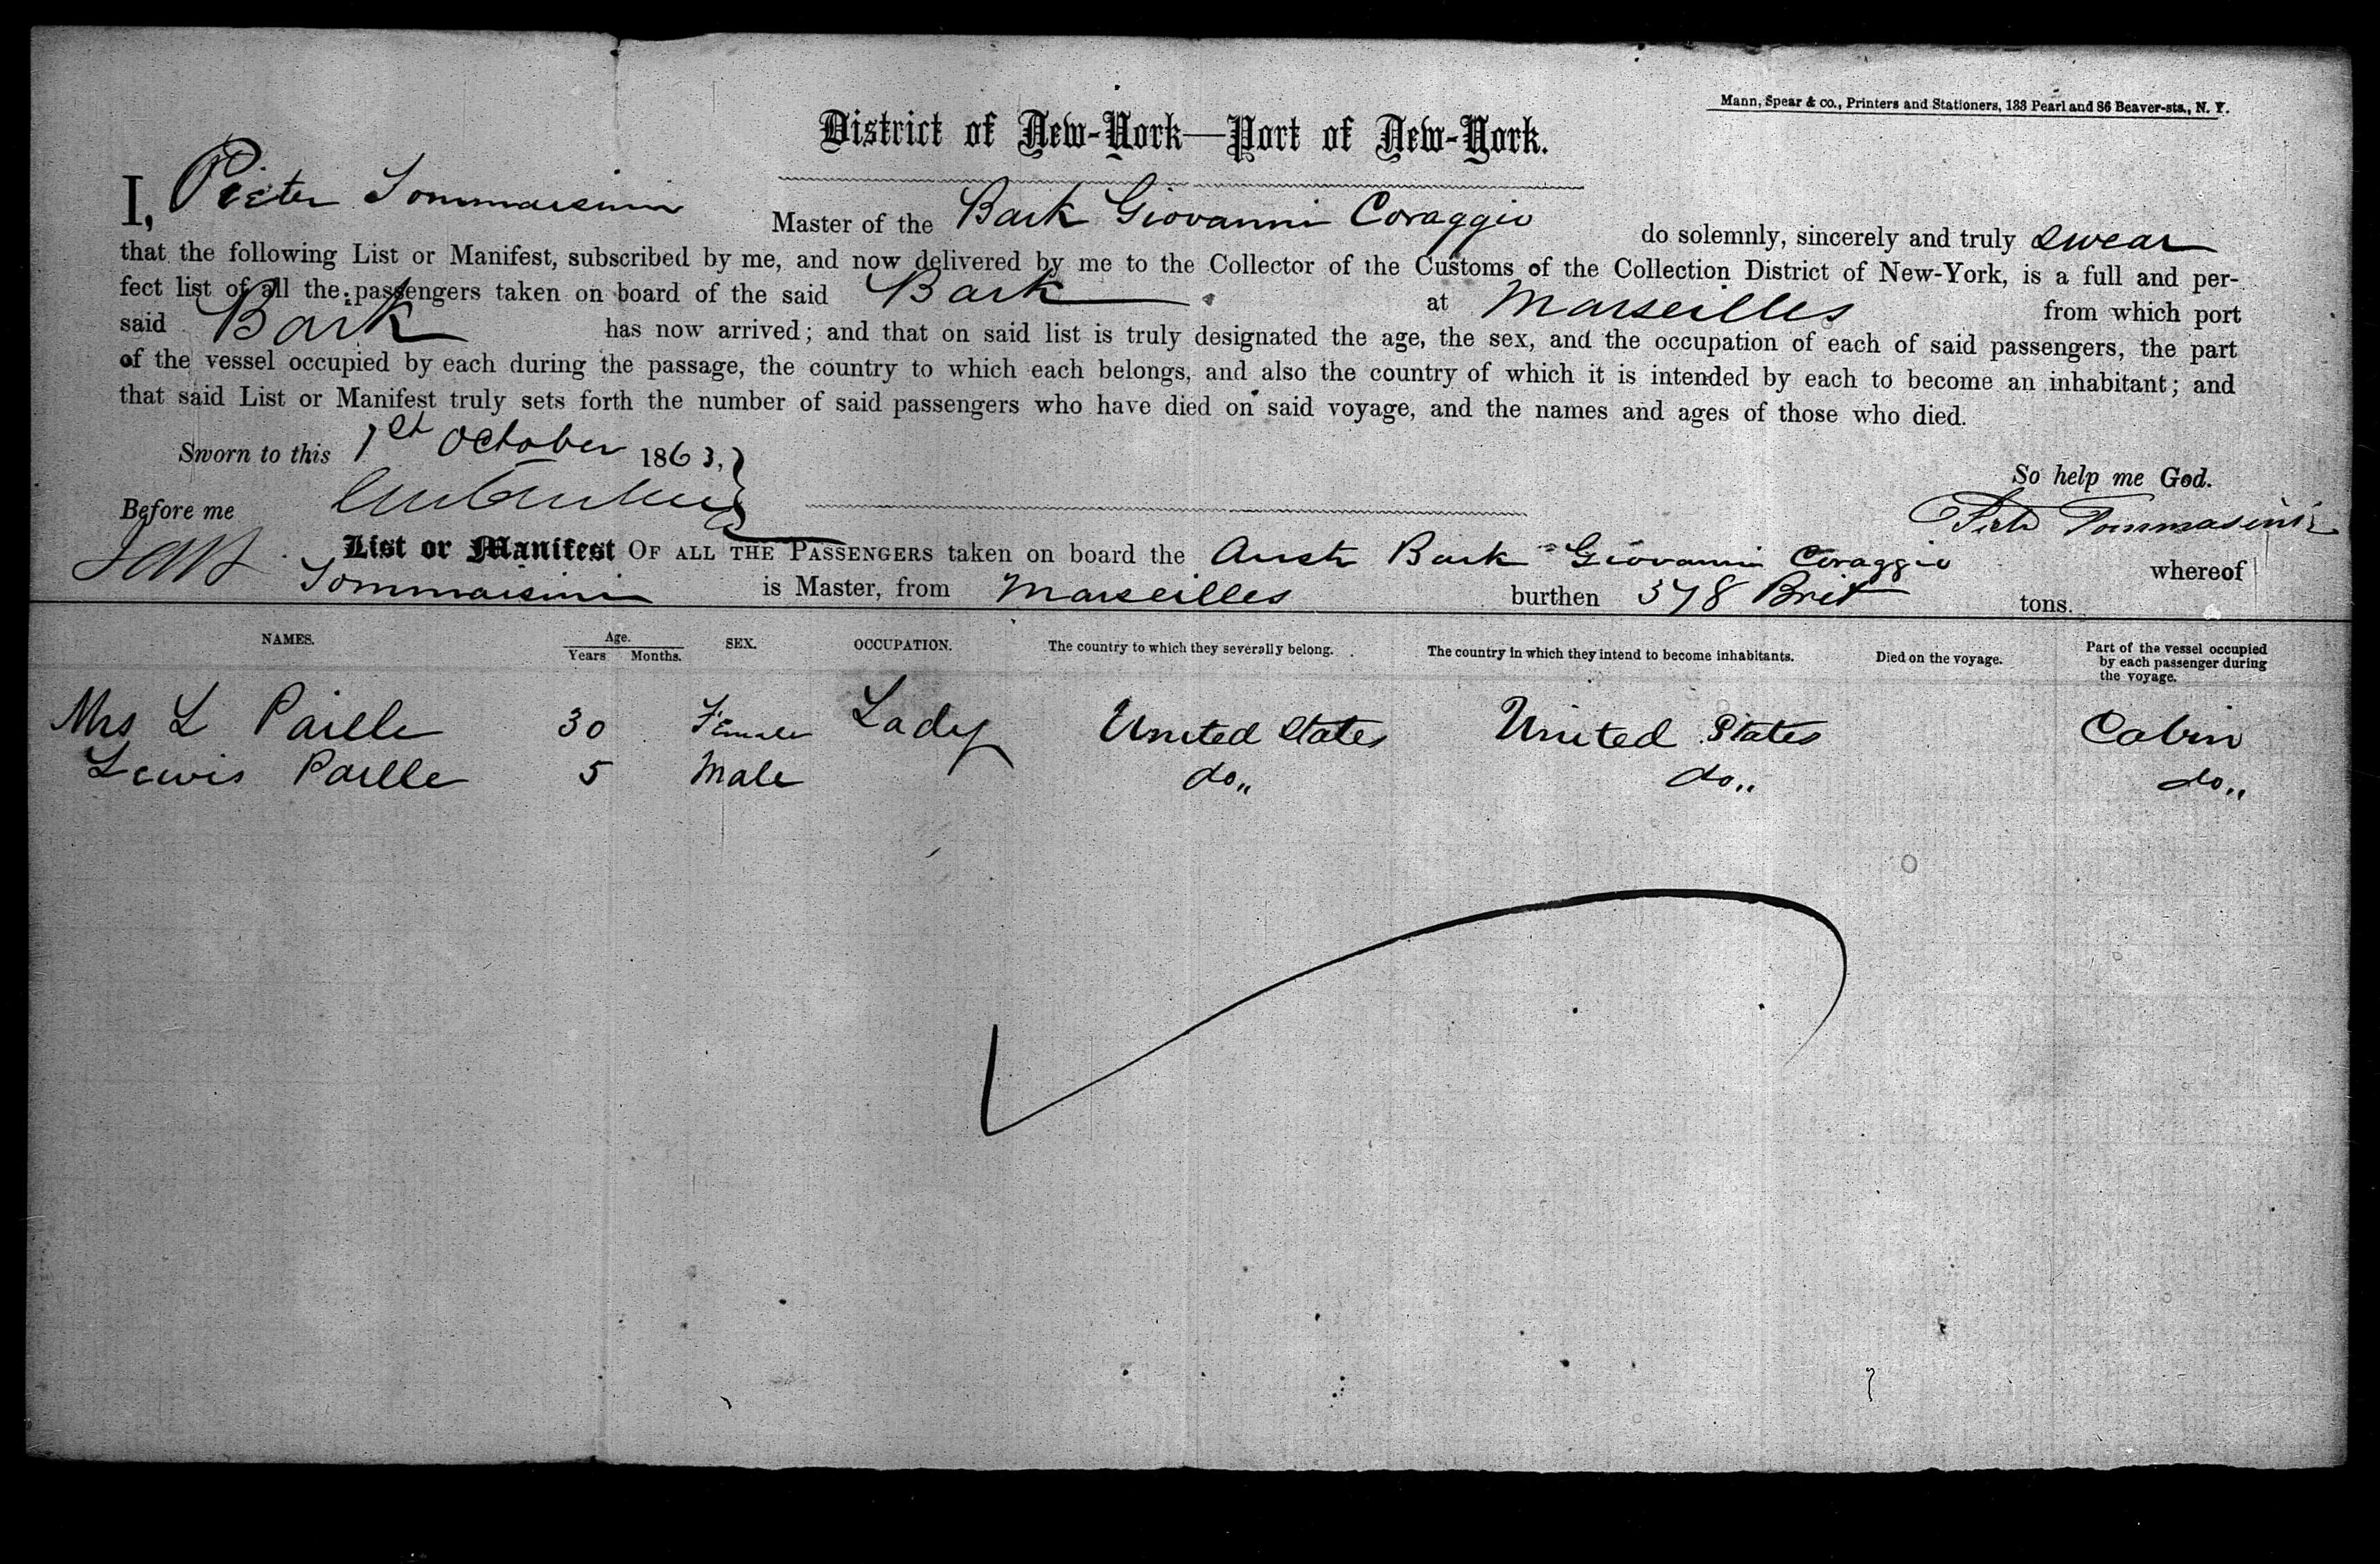 Mann, Spear & co., Printers and Stationers, 133 Pearl and 86 Beaver-sts., N. Y.
District of New-York—Port of New-York.
I, Pieter Tommasini Master of the Bark Giovanni Coraggio do solemnly, sincerely and truly swear
that the following List or Manifest, subscribed by me, and now delivered by me to the Collector of the Customs of the Collection District of New-York, is a full and per-
fect list of all the passengers taken on board of the said Bark at Marseilles from which port
said Bark has now arrived; and that on said list is truly designated the age, the sex, and the occupation of each of said passengers, the part
of the vessel occupied by each during the passage, the country to which each belongs, and also the country of which it is intended by each to become an inhabitant; and
that said List or Manifest truly sets forth the number of said passengers who have died on said voyage, and the names and ages of those who died.
Sworn to this 1st October 1863,
So help me God.
Before me
Tommasini
List or Manifest OF ALL THE PASSENGERS taken on board the Austr Bark Giovanni Coraggio whereof
Tommasini is Master, from Marseilles burthen 378 Brit tons.
NAMES. Age. Years Months. SEX. OCCUPATION. The country to which they severally belong. The country in which they intend to become inhabitants. Died on the voyage. Part of the vessel occupied by each passenger during the voyage.
Mrs L Paille 30 Female Lady United States United States Cabin
Lewis Paille 5 Male do„ do„ do„